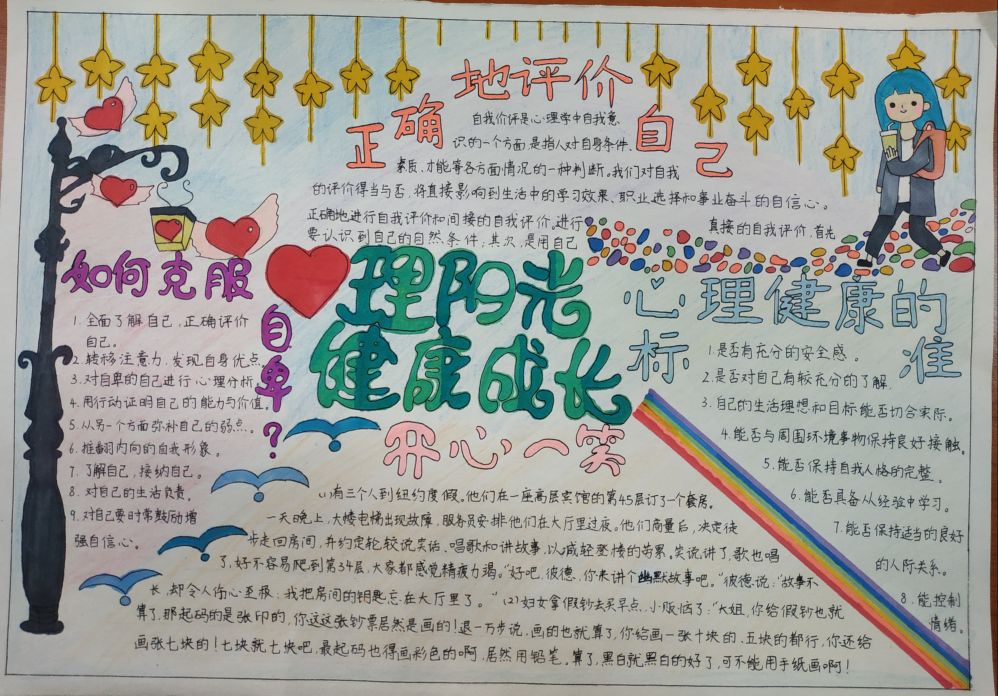 正确地评价自己
自我价评是心理学中自我意
识的一个方面是指人对自身条件、
素质、才能等各方面情况的一种判断。我们对自我
的评价得当与否,将直接影响到生活中的学习效果、职业选择和事业奋斗的自信心。
正确地进行自我评价和间接的自我评价,进行
直接的自我评价,首先
要认识到自己的自然条件;其次,是用自己
如何克服自卑?
1. 全面了解自己,正确评价
自己。
2. 转移注意力,发现自身优点。
3. 对自卑的自己进行心理分析。
4. 用行动证明自己的能力与价值。
5. 从另一个方面弥补自己的弱点。
6. 推翻内向的自我形象。
7. 了解自己,接纳自己。
8. 对自己的生活负责。
9. 对自己要时常鼓励增
强自信心。
理阳光
健康成长
心理健康的
标准
1. 是否有充分的安全感。
2. 是否对自己有较充分的了解
3. 自己的生活理想和目标能否切合实际。
4. 能否与周围环境事物保持良好接触。
5. 能否保持自我人格的完整
6. 能否具备从经验中学习。
7. 能否保持适当的良好
的人际关系。
8. 能控制
情绪。
开心一笑
(1)有三个人到纽约度假。他们在一座高层宾馆的第45层订了一个套房。
一天晚上,大楼电梯出现故障,服务员安排他们在大厅里过夜。他们商量后,决定徒
步走回房间,并约定轮较说笑话、唱歌和讲故事,以减轻登楼的劳累,笑说讲了,歌也唱
了,好不容易爬到第34层,大家都感觉精疲力竭。“好吧,彼德,你来讲个幽默故事吧。”彼德说:“故事不
长,却令人伤心至极:我把房间的钥匙忘在大厅里了。”(2)妇女拿假钞去买早点,小贩恼了:“大姐,你给假钞也就
算了,那起码的是张印的,你这这张钞票居然是画的!退一万步说,画的也就算了,你给画一张十块的、五块的都行,你还给
画张七块的!七块就七块吧,最起码也得画彩色的啊,居然用铅笔。算了,黑白就黑白的好了,可不能用手纸画啊!